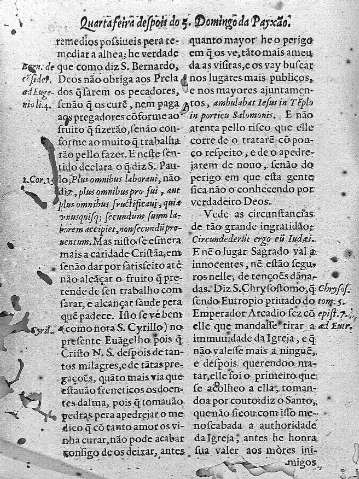 Quarta feira despois do 5. Domingo da Payxão.
remedios possiueis pera re-
mediar a alhea; he verdade
Bern. de que como diz S. Bernardo,
Deos não obriga aos Prela
ad Euge- dos q̃ sarem os pecadores,
nio li.4. senão q̃ os curẽ, nem paga
aos pregadores cõforme ao
fruito q̃ fizerão, senão con-
forme ao muito q̃ trabalha
rão pello fazer. E neste sen-
tido declara o q̃ diz S. Pau-
lo, Plus omnibus laboraui, não
diz, plus omnibus profui, aut
plus omnibus fructificaui, quia
vnusquisq; secundum suum la-
borem accipiet, non secundũ pro-
uentum. Mas nisto se esmera
mais a caridade Cristãa, em
senão dar por satisfeito atè
não alcãçar o fruito q̃ pre-
tende de seu trabalho com
sarar, e alcançar saude pera
quẽ padece. Isto se vè bem
Cyril. (como nota S. Cyrillo) no
presente Euãgelho pois q̃
Cristo N. S. despois de tan-
tos milagres, e de tãtas pre-
gações, quãto mais via que
estauão freneticos os doen-
tes dalma, pois q̃ tomauão
pedras pera apedrejar o me-
dico q̃ cõ tanto amor os vi-
nha curar, não pode acabar
consigo de os deixar, antes
quanto mayor he o perigo
em q̃ os ve, tãto mais ameu
da as visitas, e os vay buscar
nos lugares mais publicos,
e nos mayores ajuntamen-
tos, ambulabat Iesus in Tẽplo
in porticu Salomonis. E não
atenta pello risco que elle
corre de o tratarẽ cõ pou-
co respeito, e de o apedre-
jarem de nouo, senão do
perigo em que esta gente
não o conhecendo por
verdadeiro Deos.
Vede as circunstancias
de tão grande ingratidão:
Circundederũt ergo eũ Iudæi.
E nẽ o lugar Sagrado val a
innocentes, nẽ estão segu-
ros nelle, de tenções dãna-
das. Diz S. Chrysostomo, q̃ Chrysos.
sendo Eutropio priuado do tom. 5.
Emperador Arcadio fez cõ epist. 7.
elle que mandasse tirar a ad Eut.
immunidade da Igreja, e q̃
não valesse mais a ninguẽ,
e despois querendoo ma-
tar, elle foi o primeiro que
se acolheo a ella, toman-
doa por couto: diz o Santo,
que não ficou com isso me-
noscabada a authoridade
da Igreja; antes he honra
sua valer aos mòres ini-
migos